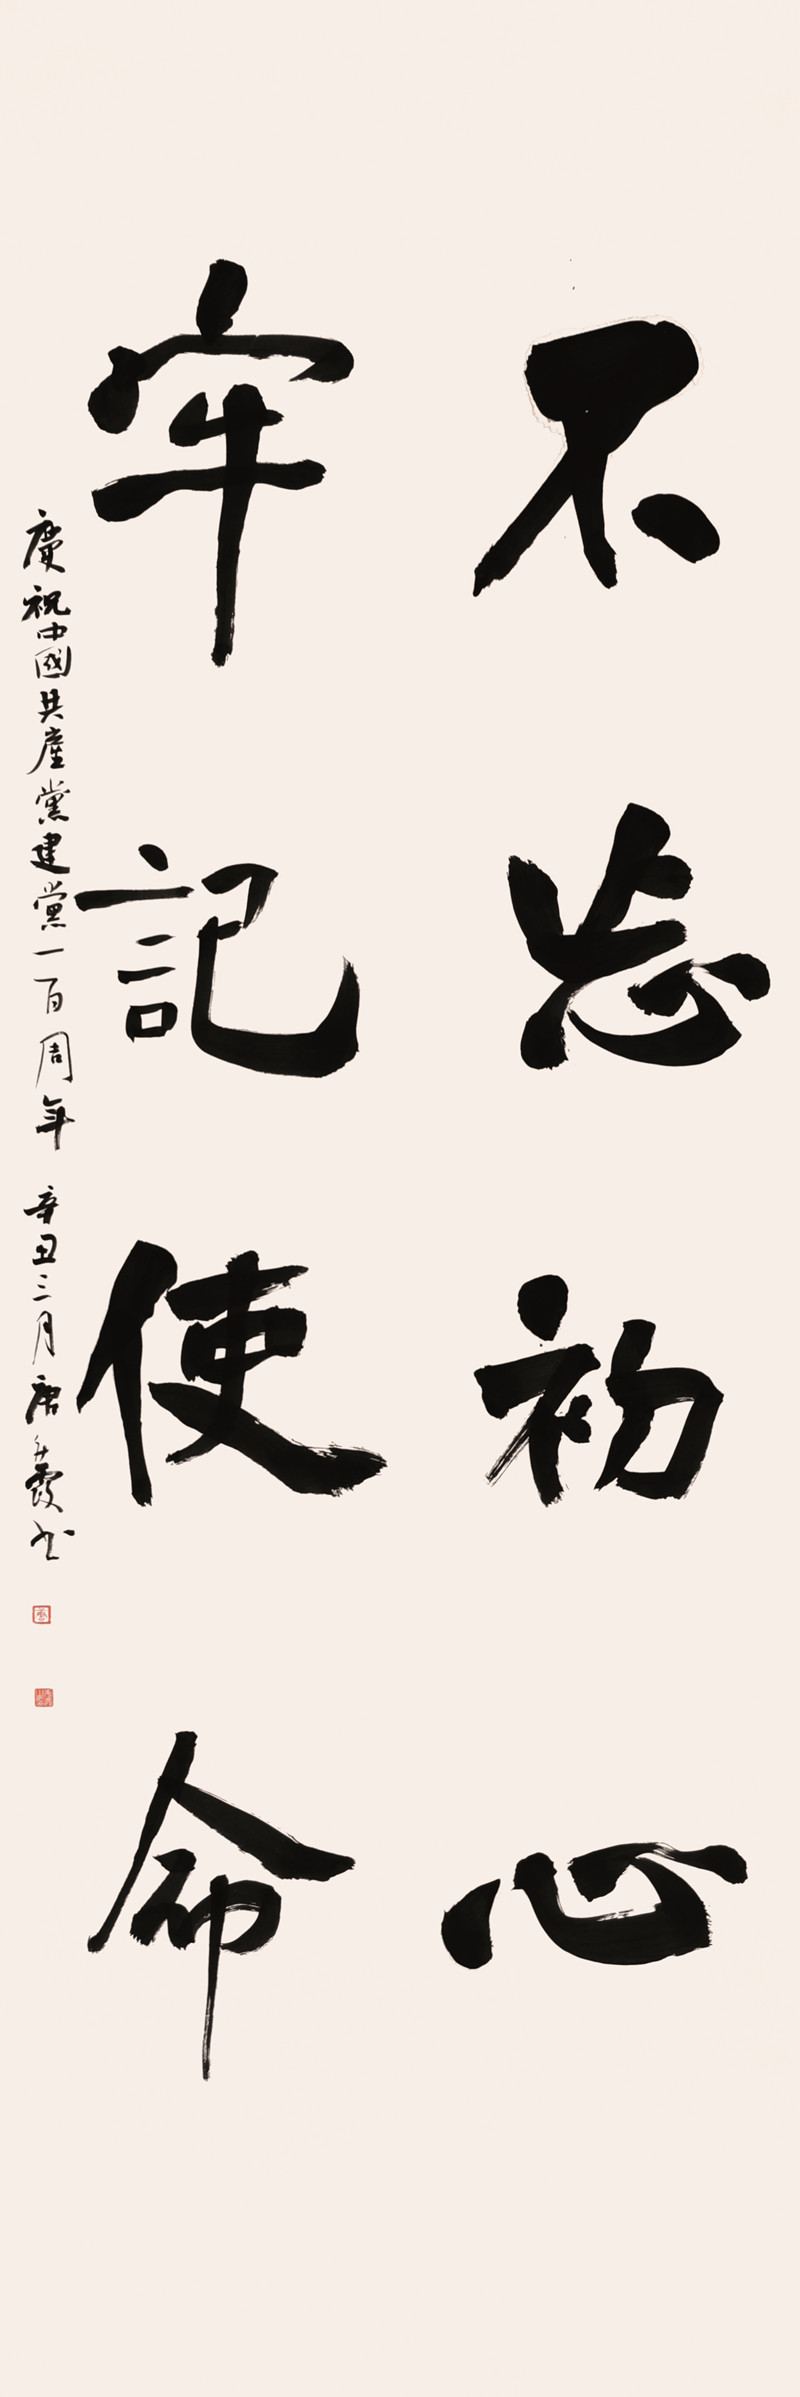 不忘初心
牢記使命
慶祝中國共產黨建黨一百周年 辛丑三月唐雲霞书